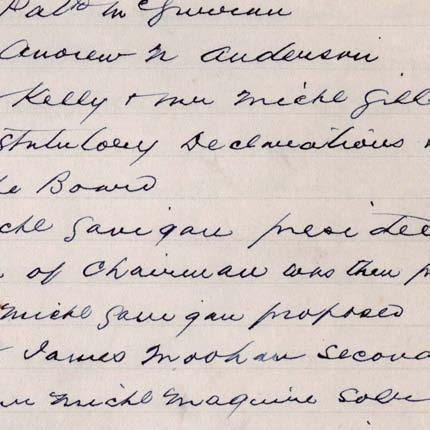 Patk McGivern
Andrew N Anderson
Kelly + mr Michl Gill
Statutory Declarations
he Board
chl Gavigan presided
of Chairman was then p
Michl Gavigan proposed
James Moohan second
Michl Maguire